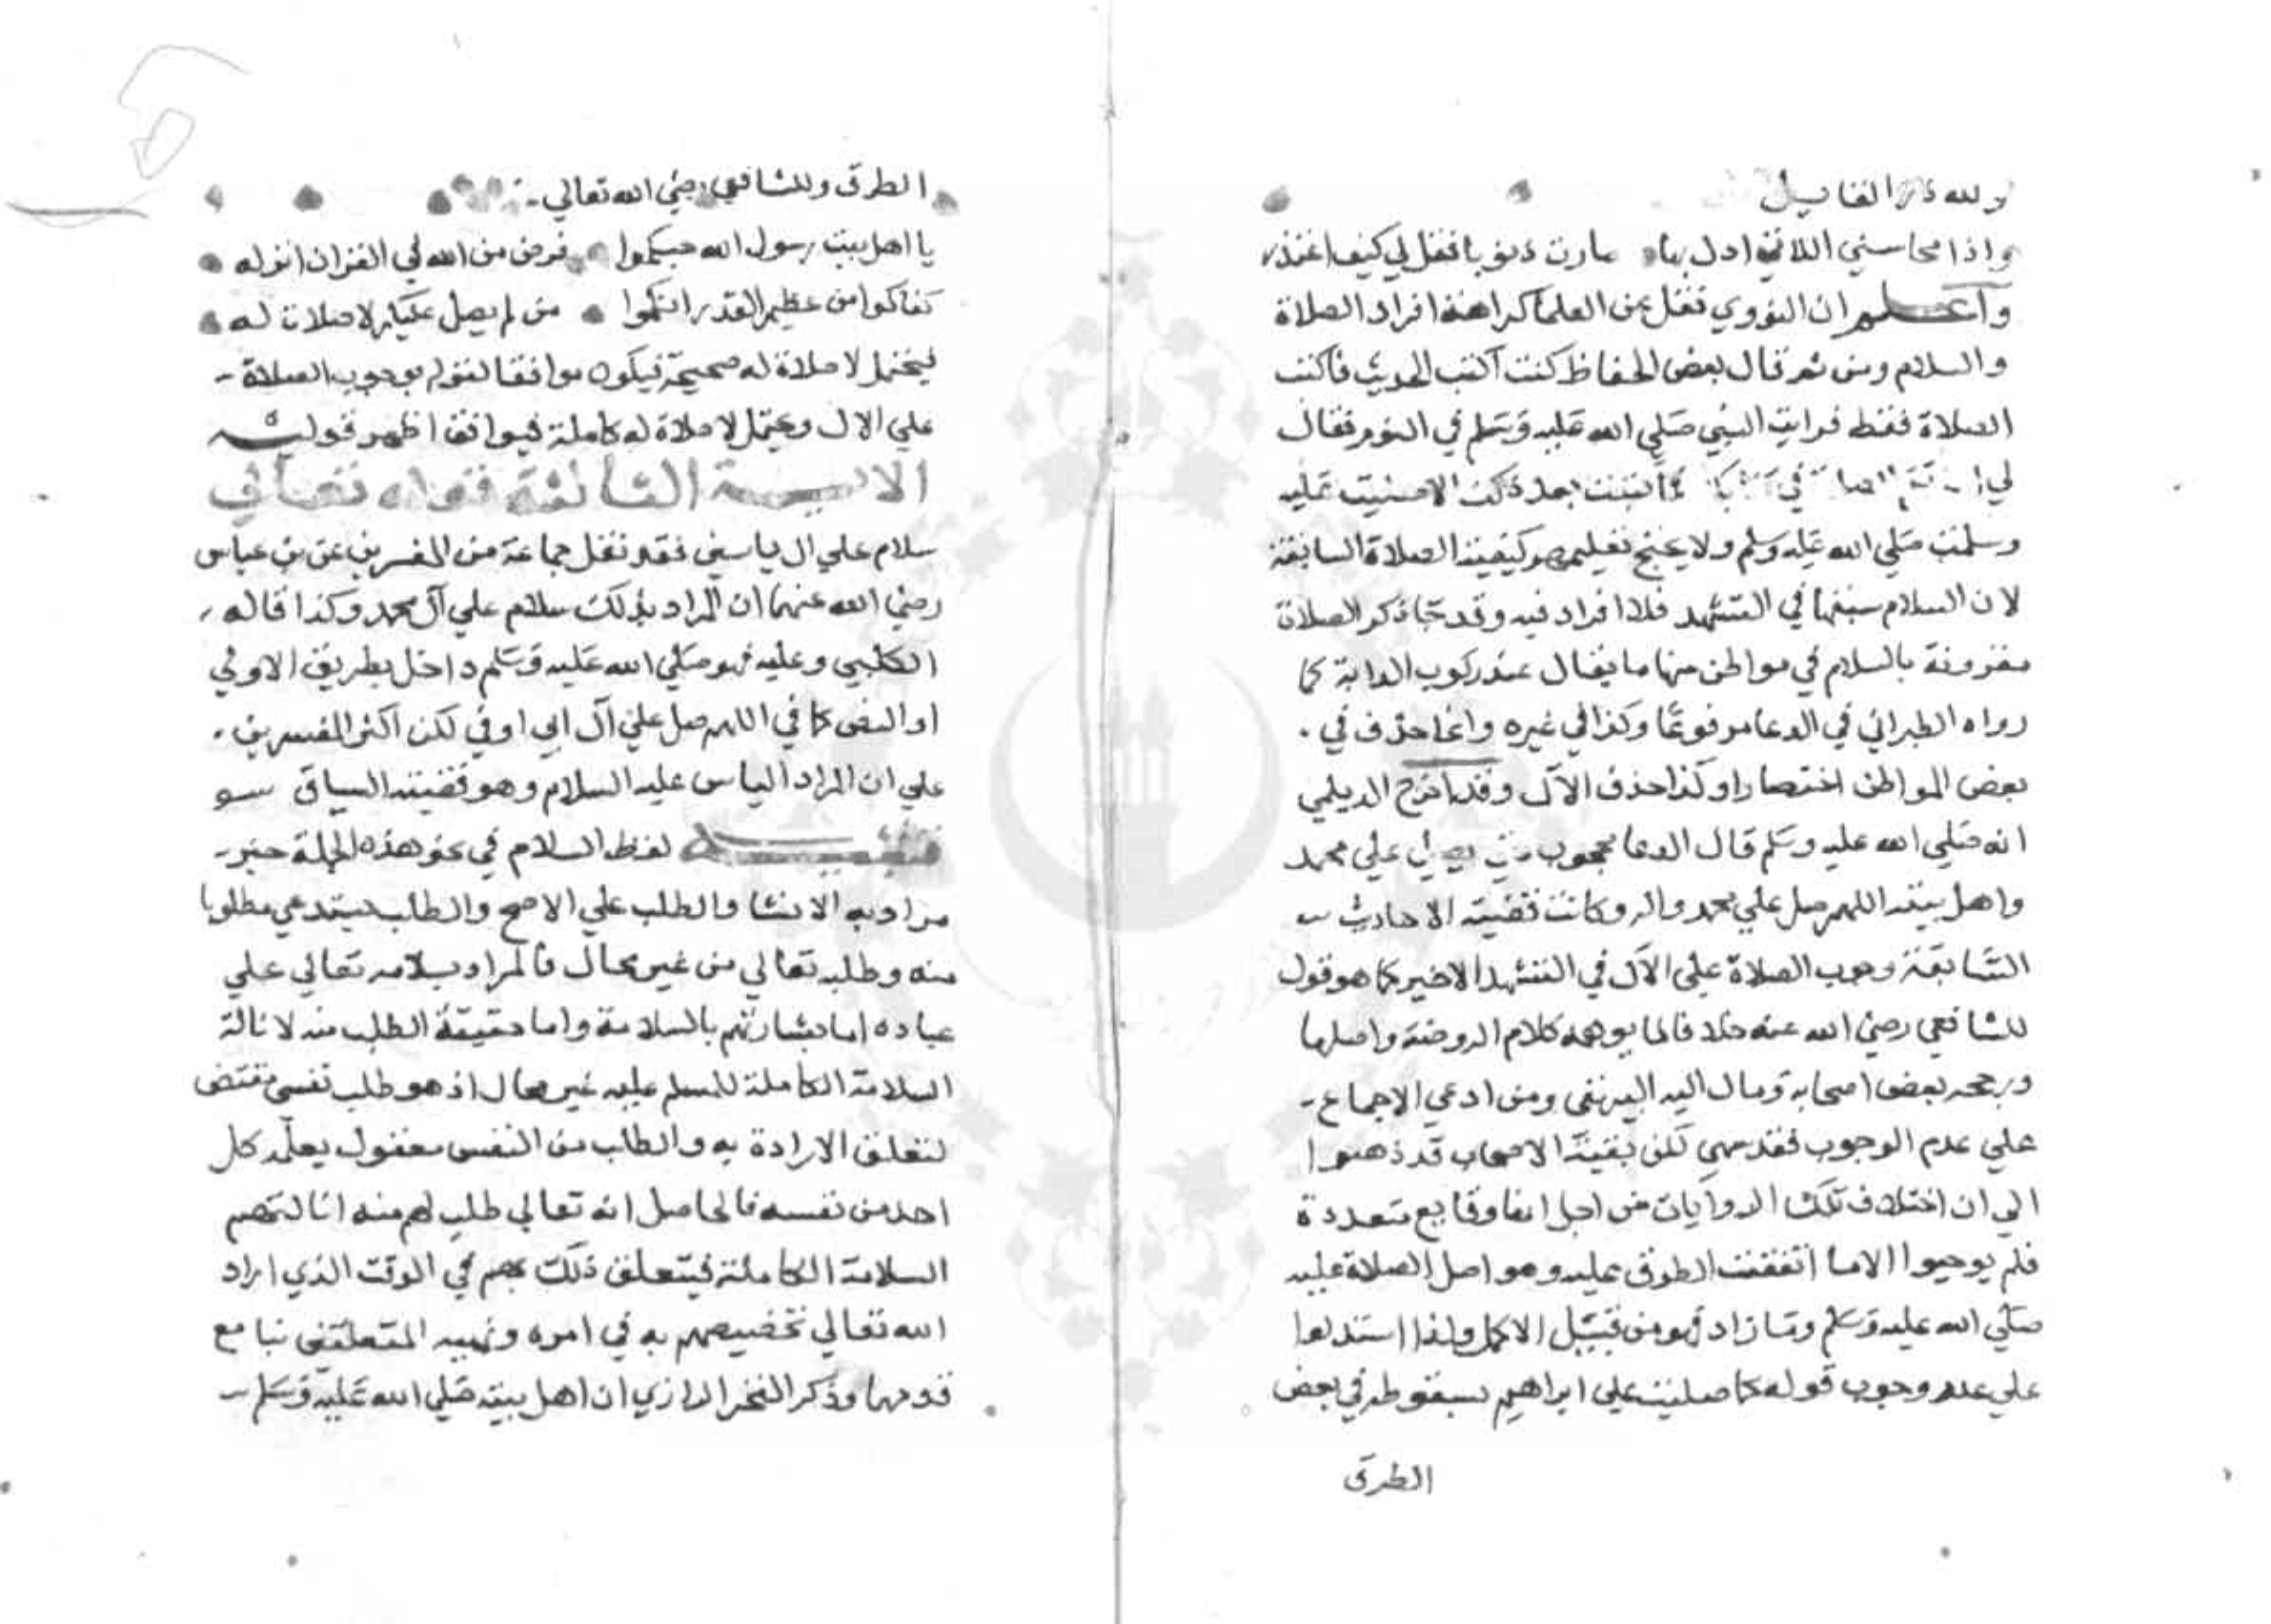 ولله در القايل
واذا محاسني اللاتي ادل بها صارت ذنوبا فقل لي كيف اعتذر
واعلم ان النووي نقل عن العلما كراهة افراد الصلاة
والسلام ومن ثم قال بعض الحفاظ كنت اكتب الحديث فاكتب
الصلاة فقط فرايت النبي صلي الله عليه وسلم في النوم فقال
لي في فما كتبت بعد ذلك الا صليت عليه
وسلمت صلي الله عليه وسلم ولا يحتج بتعليمهم كيفية الصلاة السابقة
لان السلام سبقها في التشهد فلا افراد فيه وقد جا ذكر الصلاة
مقرونة بالسلام في مواطن منها ما يقال عند ركوب الدابة كما
رواه الطبراني في الدعا مرفوعا وكذا في غيره وانما حذف في
بعض المواطن اختصارا وكذا حذف الآل وقد اخرج الديلمي
انه صلي الله عليه وسلم قال الدعا محجوب حتي يصلي علي محمد
واهل بيته اللهم صل علي محمد واله وكانت قضية الاحاديث
السابقة وجوب الصلاة علي الآل في التشهد الاخير كما هو قول
للشافعي رضي الله عنه خلافا لما يوهمه كلام الروضة واصلها
ورجحه بعض اصحابه ومال اليه البيهقي ومن ادعي الاجماع
علي عدم الوجوب فقد سهي لكن بقية الاصحاب قد ذهبوا
الي ان اختلاف تلك الروايات من اجل انها وقايع متعددة
فلم يوجبوا الا ما اتفقت الطرق عليه وهو اصل الصلاة عليه
صلي الله عليه وسلم وما زاد فهو من قبيل الاكمل ولذا استدلوا
علي عدم وجوب قوله كما صليت علي ابراهيم بسقوطه في بعض
الطرق
الطرق وللشافعي رضي الله تعالي
يا اهل بيت رسول الله حبكموا فرض من الله في القران انزله
كفاكموا من عظيم القدر انكموا من لم يصل عليكم لا صلاة له
فيحتمل لا صلاة له صحيحة فيكون موافقا لقوله بوجوب الصلاة
علي الال ويحتمل لا صلاة له كاملة فيوافق اظهر قوليه
الاية الثالثة قوله تعالي
سلام علي ال ياسين فقد نقل جماعة من المفسرين عن بن عباس
رضي الله عنهما ان المراد بذلك سلام علي آل محمد وكذا قاله
الكلبي وعليه فهو صلي الله عليه وسلم داخل بطريق الاولي
او النص كما في اللهم صل علي آل ابي اوفي لكن اكثر المفسرين
علي ان المراد الياس عليه السلام وهو قضية السياق
تنبيه لفظ السلام في نحو هذه الجملة خبر
مراد به الانشا والطلب علي الاصح والطلب يستدعي مطلوبا
منه وطلبه تعالي من غير محال فالمراد بسلامه تعالي علي
عباده اما بشارتهم بالسلامة واما حقيقة الطلب منه لانالة
السلامة الكاملة للمسلم عليه غير محال اذ هو طلب نفسي مقتض
لتعلق الارادة به والطلب من النفس معقول يعلمه كل
احد من نفسه فالحاصل انه تعالي طلب لهم منه انالتهم
السلامة الكاملة فيتعلق ذلك بهم في الوقت الذي اراد
الله تعالي تخصيصهم به في امره ونهيه المتعلقين بنا مع
قدمهما وذكر الفخر الرازي ان اهل بيته صلي الله عليه وسلم